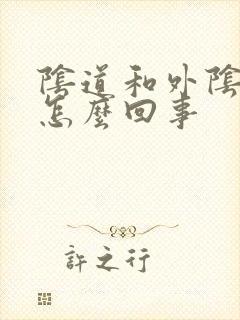 陰道和外陰
怎麼回事
許之行